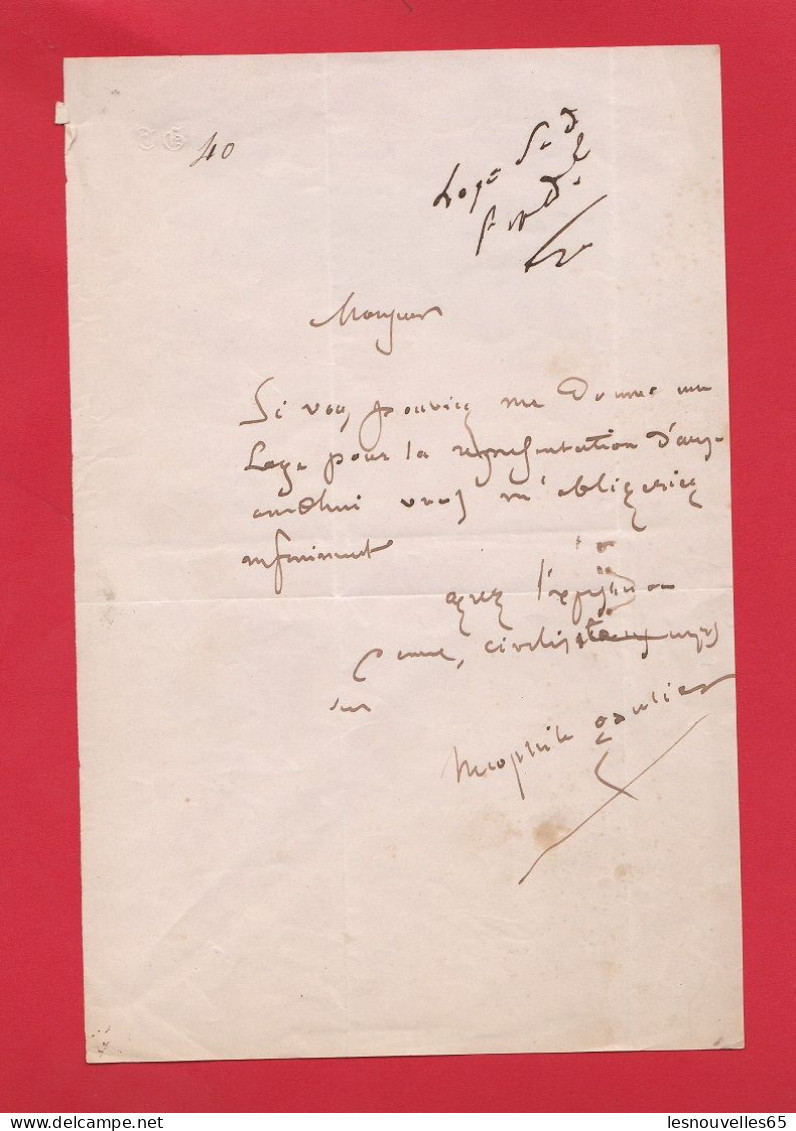 TG
40
Loge
Monsieur
Si vous pouviez me donner une
Loge pour la representation d'auj-
ourdhui vous m'obligeriez
infiniment
agreez l'expression
civilites
Theophile gautier
lesnouvelles65